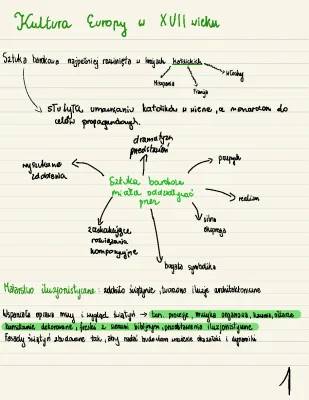 Kultura Europy w XVII wieku
Sztuka barokowa najpełniej rozwinięta w krajach katolickich
Włochy
Hiszpania
Francja
służyła umacnianiu katolików w wierze, a monarchom do
celów propagandowych.
dramatyzm
przedstawień
wyszukane
zdobienia
przepych
Sztuka baroku
miała oddziaływać
przez
realizm
silna
ekspresja
zaskakujące
rozwiązania
kompozycyjne
bogata symbolika
Malarstwo iluzjonistyczne: zdobiło świątynie, tworzono iluzje architektoniczne
Wspaniała oprawa mszy i wygląd świątyń → procesje, muzyka organowa, kazania, ołtarze
dekorowane, freski z scenami biblijnymi, przedstawienia iluzjonistyczne
Fasady świątyń zbudowane tak, aby nadać budowlom wrażenie okazałości i dynamiki
1